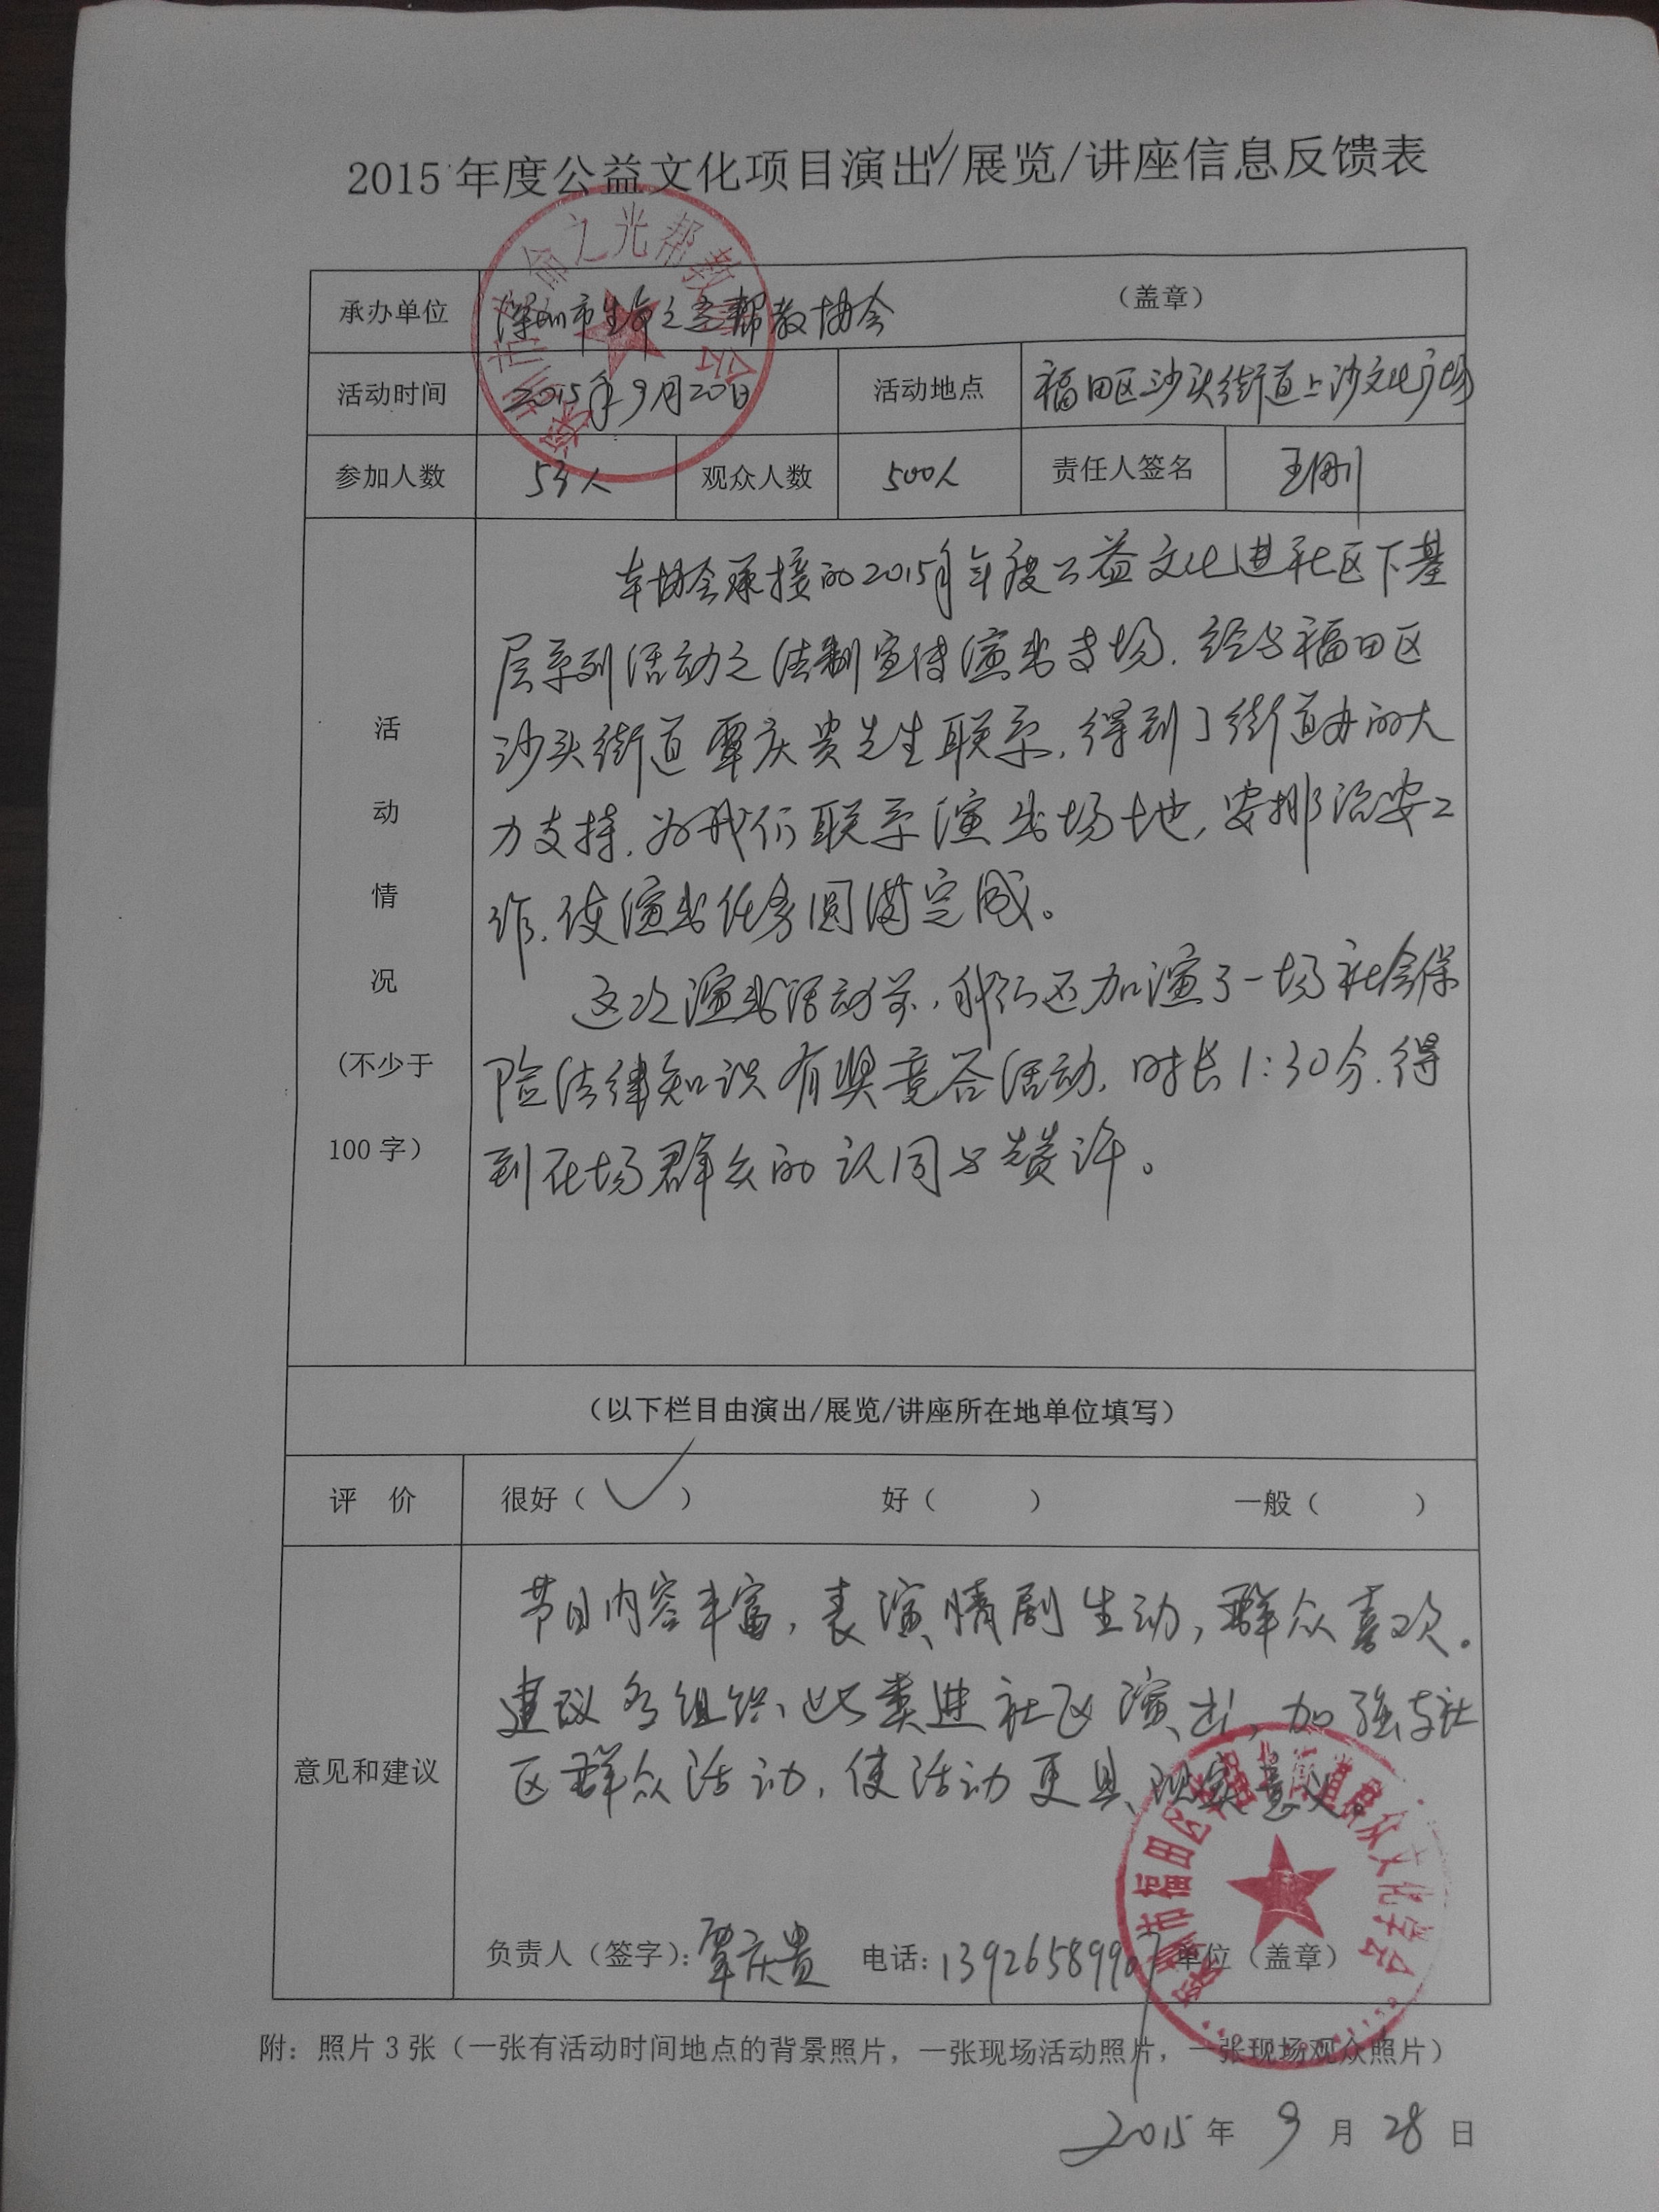 2015年度公益文化项目演出√/展览/讲座信息反馈表
承办单位 深圳市生命之光帮教协会 (盖章)
活动时间 2015年9月20日 活动地点 福田区沙头街道上沙文化广场
参加人数 53人 观众人数 500人 责任人签名 王刚
活动情况(不少于100字)
本协会承接的2015年年度公益文化进社区下基
层系列活动之法制宣传演出专场.经与福田区
沙头街道覃庆贵先生联系,得到了街道办的大
力支持.为我们联系演出场地,安排治安工
作.使演出任务圆满完成。
这次演出活动前,我们还加演了一场社会保
险法律知识有奖竞答活动.时长1:30分.得
到在场群众的认同与赞许。
(以下栏目由演出/展览/讲座所在地单位填写)
评 价 很好(√) 好( ) 一般( )
意见和建议
节目内容丰富,表演情剧生动,群众喜欢。
建议多组织此类进社区演出,加强与社
区群众活动,使活动更具现实意义。
负责人(签字):覃庆贵 电话:13926589967 单位(盖章)
附:照片3张(一张有活动时间地点的背景照片,一张现场活动照片,一张现场观众照片)
2015年9月28日